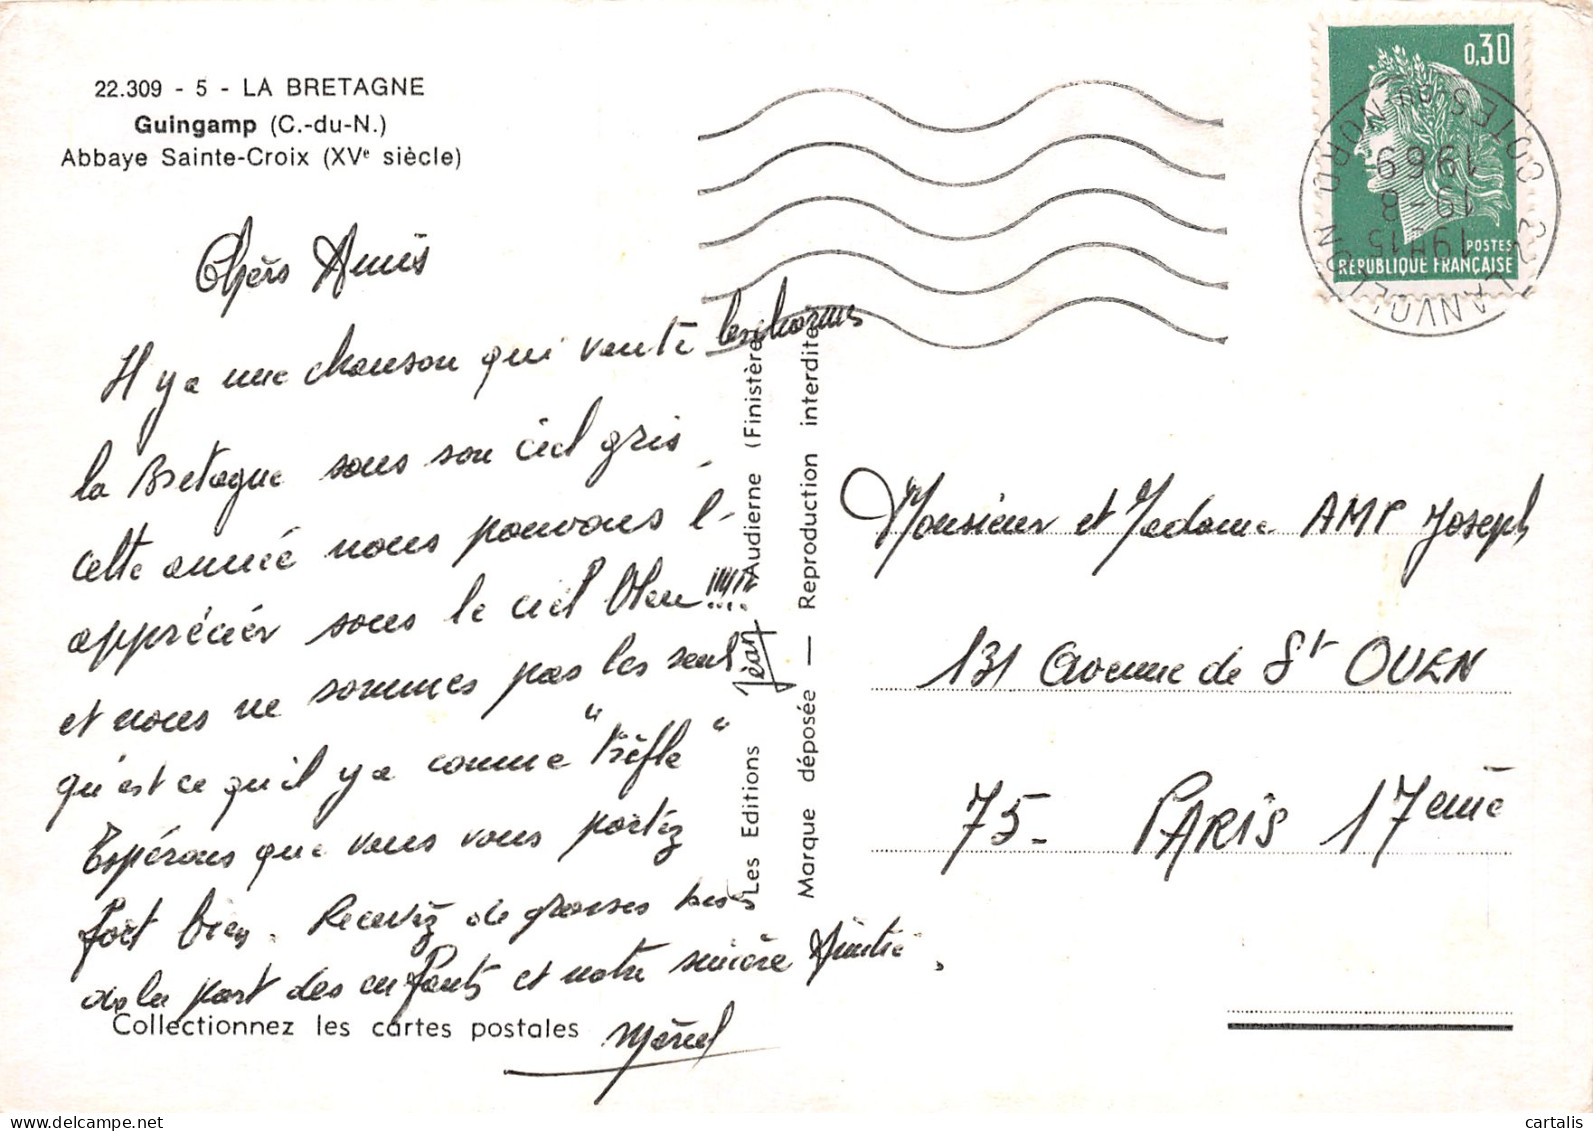 22.309 - 5 - LA BRETAGNE
Guingamp (C.-du-N.)
Abbaye Sainte-Croix (XVe siècle)
Chèrs Amis
Il y a une chanson qui vente les charmes
la Bretagne sous son ciel gris.
cette année nous pouvons l'
apprécier sous le ciel bleu !!!!!
et nous ne sommes pas les seul
qu'est ce qu'il y a comme "trèfle"
Espérons que vous vous portez
fort bien. Recevez de grosses bises
de la part des enfants et notre sincère Amitié.
Collectionnez les cartes postales
Les Editions Jéan Audierne (Finistère
Marque déposée — Reproduction interdite
0,30
POSTES
RÉPUBLIQUE FRANÇAISE
19H15
19-8
1969
22 LANVOLLON
COTES DU NORD
Monsieur et Madame AMP Joseph
131 Avenue de St OUEN
75- PARIS 17ème
cartalis